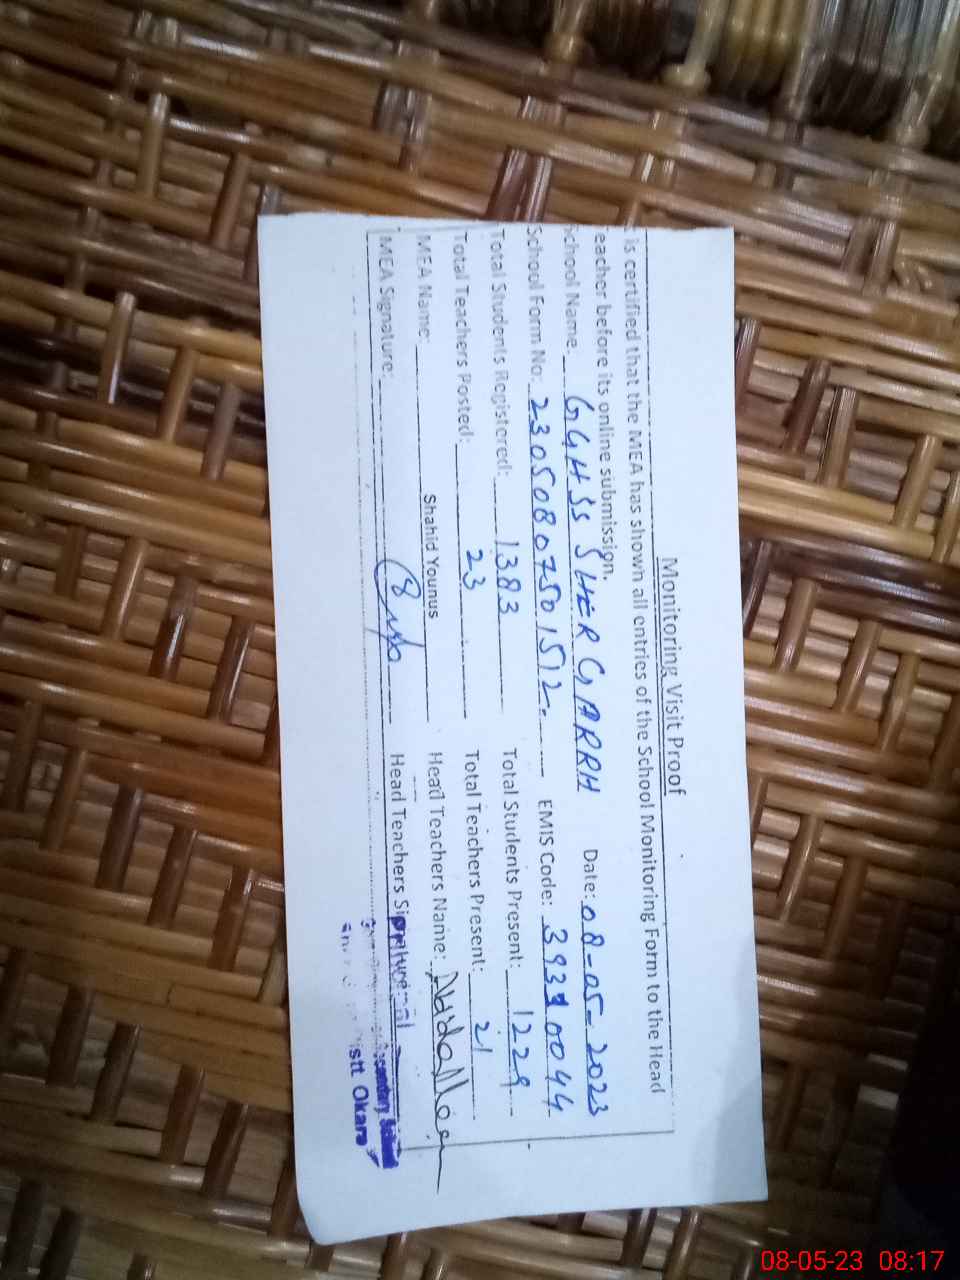 Monitoring Visit Proof
is certified that the MEA has shown all entries of the School Monitoring Form to the Head
Teacher before its online submission.
School Name: GGHSS SHER GARRH Date: 08-05-2023
School Form No: 23050807501512 EMIS Code: 39310044
Total Students Registered: 1383 Total Students Present: 1229
Total Teachers Posted: 23 Total Teachers Present: 21
MEA Name: Shahid Younus Head Teachers Name:
MEA Signature: Head Teachers Signature:
Secondary School
Distt. Okara
08-05-23 08:17